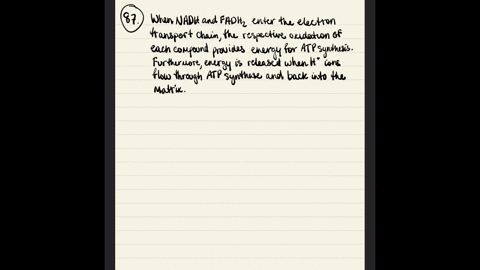 87. When NADH and FADH₂ enter the electron
transport chain, the respective oxidation of
each compound provides energy for ATP synthesis.
Furthermore, energy is released when H⁺ ions
flow through ATP synthase and back into the
matrix.